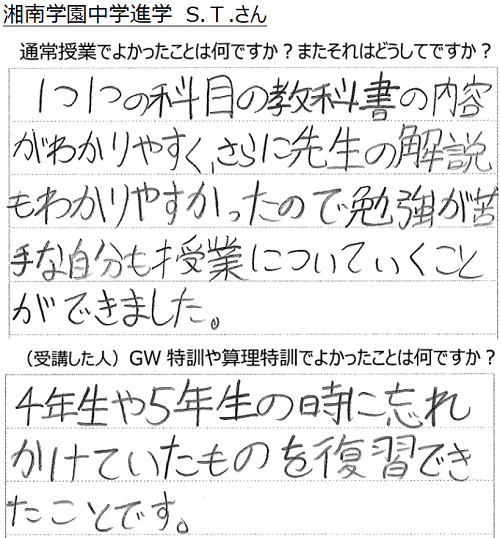 湘南学園中学進学　S.T.さん
通常授業でよかったことは何ですか？またそれはどうしてですか？
1つ1つの科目の教科書の内容
がわかりやすく、さらに先生の解説
もわかりやすかったので勉強が苦
手な自分も授業についていくこと
ができました。
（受講した人）GW 特訓や算理特訓でよかったことは何ですか？
4年生や5年生の時に忘れ
かけていたものを復習でき
たことです。